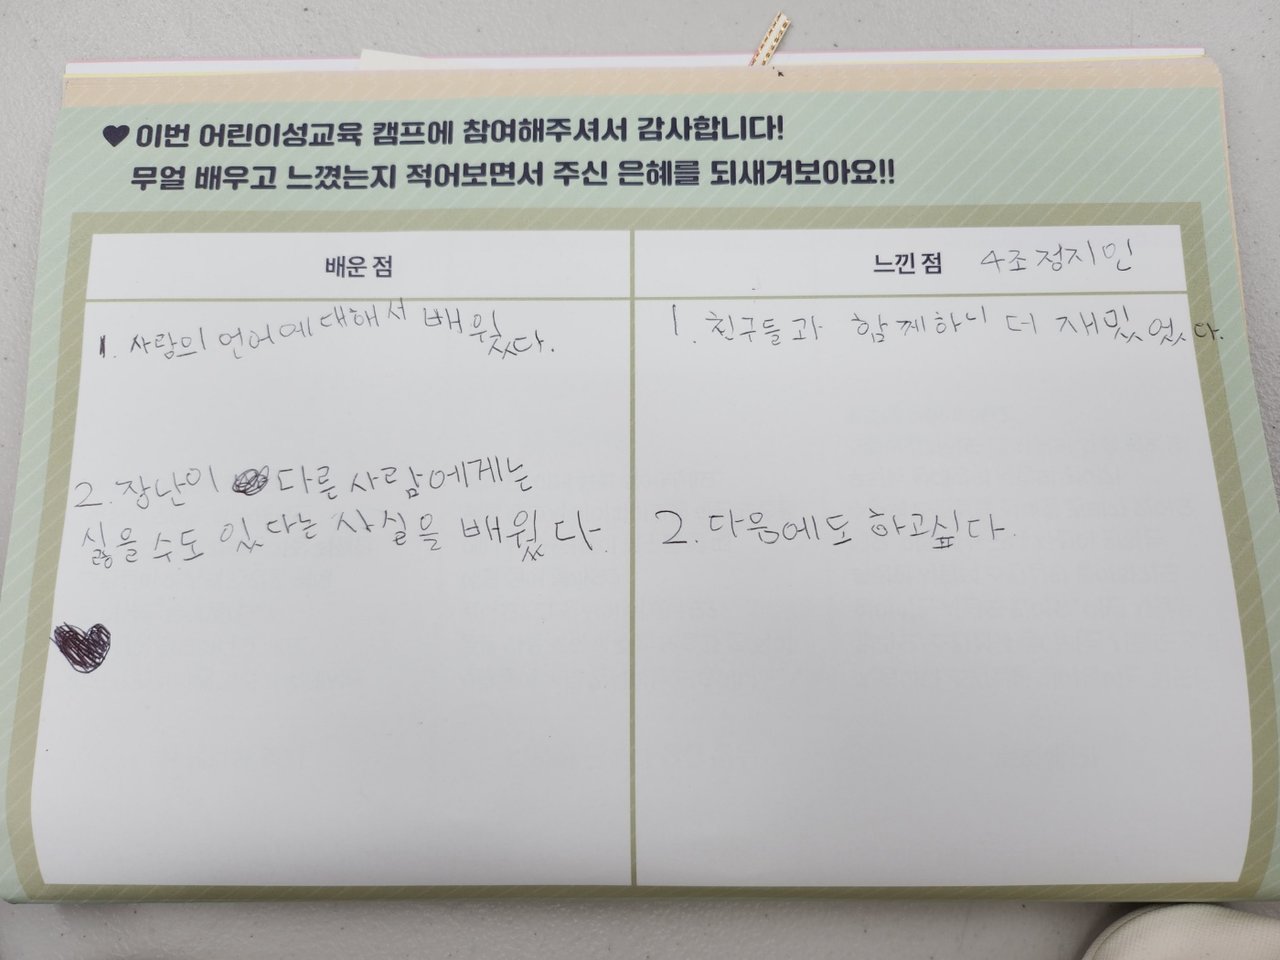 ♥이번 어린이성교육 캠프에 참여해주셔서 감사합니다!
무얼 배우고 느꼈는지 적어보면서 주신 은혜를 되새겨보아요!!
배운 점
느낀 점 4조 정지인
1. 사람의 언어에 대해서 배웠다.
2. 장난이 다른 사람에게는
싫을 수도 있다는 사실을 배웠다.
1. 친구들과 함께하니 더 재밌었다.
2. 다음에도 하고싶다.